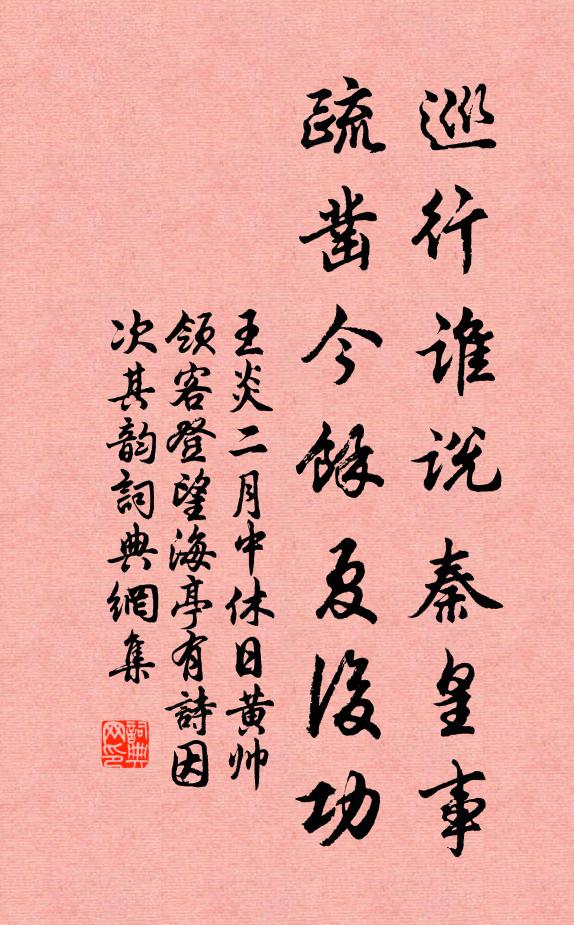 巡行谁说秦皇事
疏凿今馀夏後功
王炎二月中休日黄帅
领客登望海亭有詩因
次其韵詞典網集
詞典网印